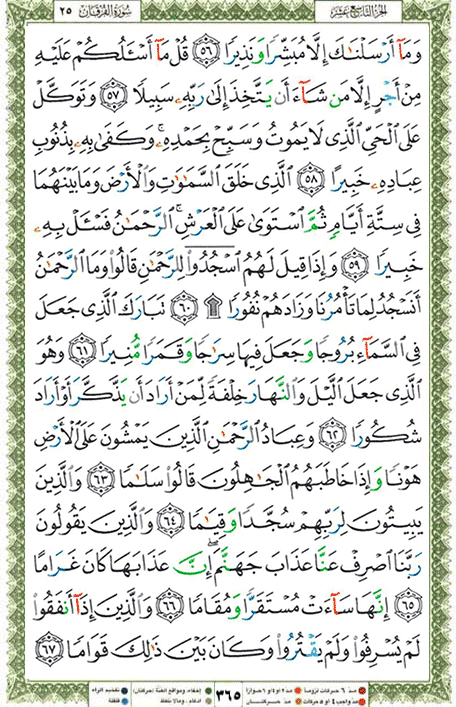 الجزء التاسع عشر
سورة الفرقان ٢٥
وَمَآ أَرْسَلْنَٰكَ إِلَّا مُبَشِّرًا وَنَذِيرًا ٥٦ قُلْ مَآ أَسْـَٔلُكُمْ عَلَيْهِ
مِنْ أَجْرٍ إِلَّا مَن شَآءَ أَن يَتَّخِذَ إِلَىٰ رَبِّهِۦ سَبِيلًا ٥٧ وَتَوَكَّلْ
عَلَى ٱلْحَىِّ ٱلَّذِى لَا يَمُوتُ وَسَبِّحْ بِحَمْدِهِۦ ۚ وَكَفَىٰ بِهِۦ بِذُنُوبِ
عِبَادِهِۦ خَبِيرًا ٥٨ ٱلَّذِى خَلَقَ ٱلسَّمَٰوَٰتِ وَٱلْأَرْضَ وَمَا بَيْنَهُمَا
فِى سِتَّةِ أَيَّامٍ ثُمَّ ٱسْتَوَىٰ عَلَى ٱلْعَرْشِ ۚ ٱلرَّحْمَٰنُ فَسْـَٔلْ بِهِۦ
خَبِيرًا ٥٩ وَإِذَا قِيلَ لَهُمُ ٱسْجُدُوا۟ لِلرَّحْمَٰنِ قَالُوا۟ وَمَا ٱلرَّحْمَٰنُ
أَنَسْجُدُ لِمَا تَأْمُرُنَا وَزَادَهُمْ نُفُورًا ۩ ٦٠ تَبَارَكَ ٱلَّذِى جَعَلَ
فِى ٱلسَّمَآءِ بُرُوجًا وَجَعَلَ فِيهَا سِرَٰجًا وَقَمَرًا مُّنِيرًا ٦١ وَهُوَ
ٱلَّذِى جَعَلَ ٱلَّيْلَ وَٱلنَّهَارَ خِلْفَةً لِّمَنْ أَرَادَ أَن يَذَّكَّرَ أَوْ أَرَادَ
شُكُورًا ٦٢ وَعِبَادُ ٱلرَّحْمَٰنِ ٱلَّذِينَ يَمْشُونَ عَلَى ٱلْأَرْضِ
هَوْنًا وَإِذَا خَاطَبَهُمُ ٱلْجَٰهِلُونَ قَالُوا۟ سَلَٰمًا ٦٣ وَٱلَّذِينَ
يَبِيتُونَ لِرَبِّهِمْ سُجَّدًا وَقِيَٰمًا ٦٤ وَٱلَّذِينَ يَقُولُونَ
رَبَّنَا ٱصْرِفْ عَنَّا عَذَابَ جَهَنَّمَ ۖ إِنَّ عَذَابَهَا كَانَ غَرَامًا
٦٥ إِنَّهَا سَآءَتْ مُسْتَقَرًّا وَمُقَامًا ٦٦ وَٱلَّذِينَ إِذَآ أَنفَقُوا۟
لَمْ يُسْرِفُوا۟ وَلَمْ يَقْتُرُوا۟ وَكَانَ بَيْنَ ذَٰلِكَ قَوَامًا ٦٧
٣٦٥